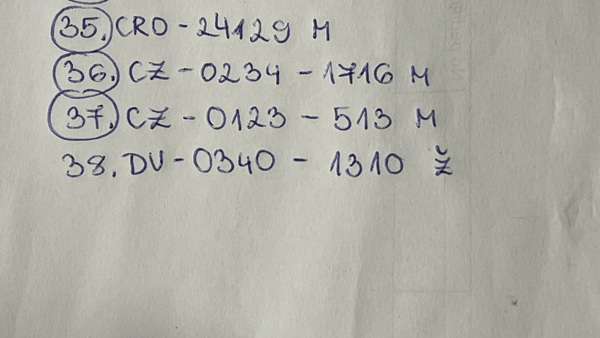 35. CRO - 24129 M
36. CZ - 0234 - 1716 M
37. CZ - 0123 - 513 M
38. DV - 0340 - 1310 Ž